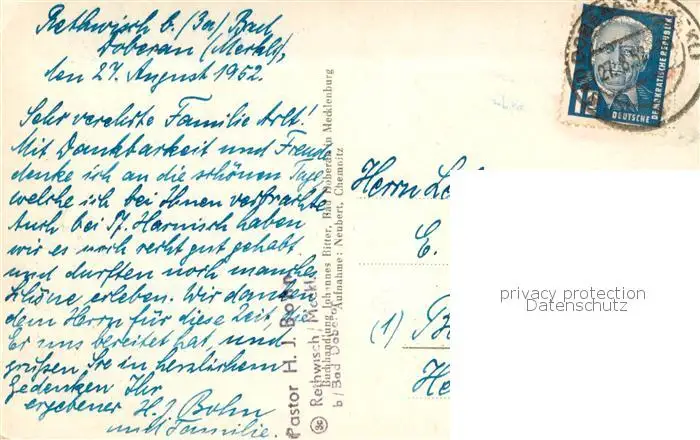 Rethwisch b./(3a) Bad
Doberan (Meckl),
den 27. August 1952.
Sehr verehrte Familie Arlt!
Mit Dankbarkeit und Freude
denke ich an die schönen Tage,
welche ich bei Ihnen verbrachte.
Auch bei Pf. Harnisch haben
wir es noch recht gut gehabt
und durften noch manches
Schöne erleben. Wir danken
dem Herrn für diese Zeit die
Er uns bereitet hat, und
grüßen Sie in herzlichem
Gedenken Ihr
ergebener H. J. Bohn
und Familie.
Pastor H. J. Bohn
(3a) Rethwisch/Meckl.
b/Bad Doberan
Buchhandlung Johannes Bitter, Bad Doberan in Mecklenburg
Aufnahme: Neubert, Chemnitz
12
DEUTSCHE
DEMOKRATISCHE REPUBLIK
Herrn
E.
(1) B
He
privacy protection
Datenschutz